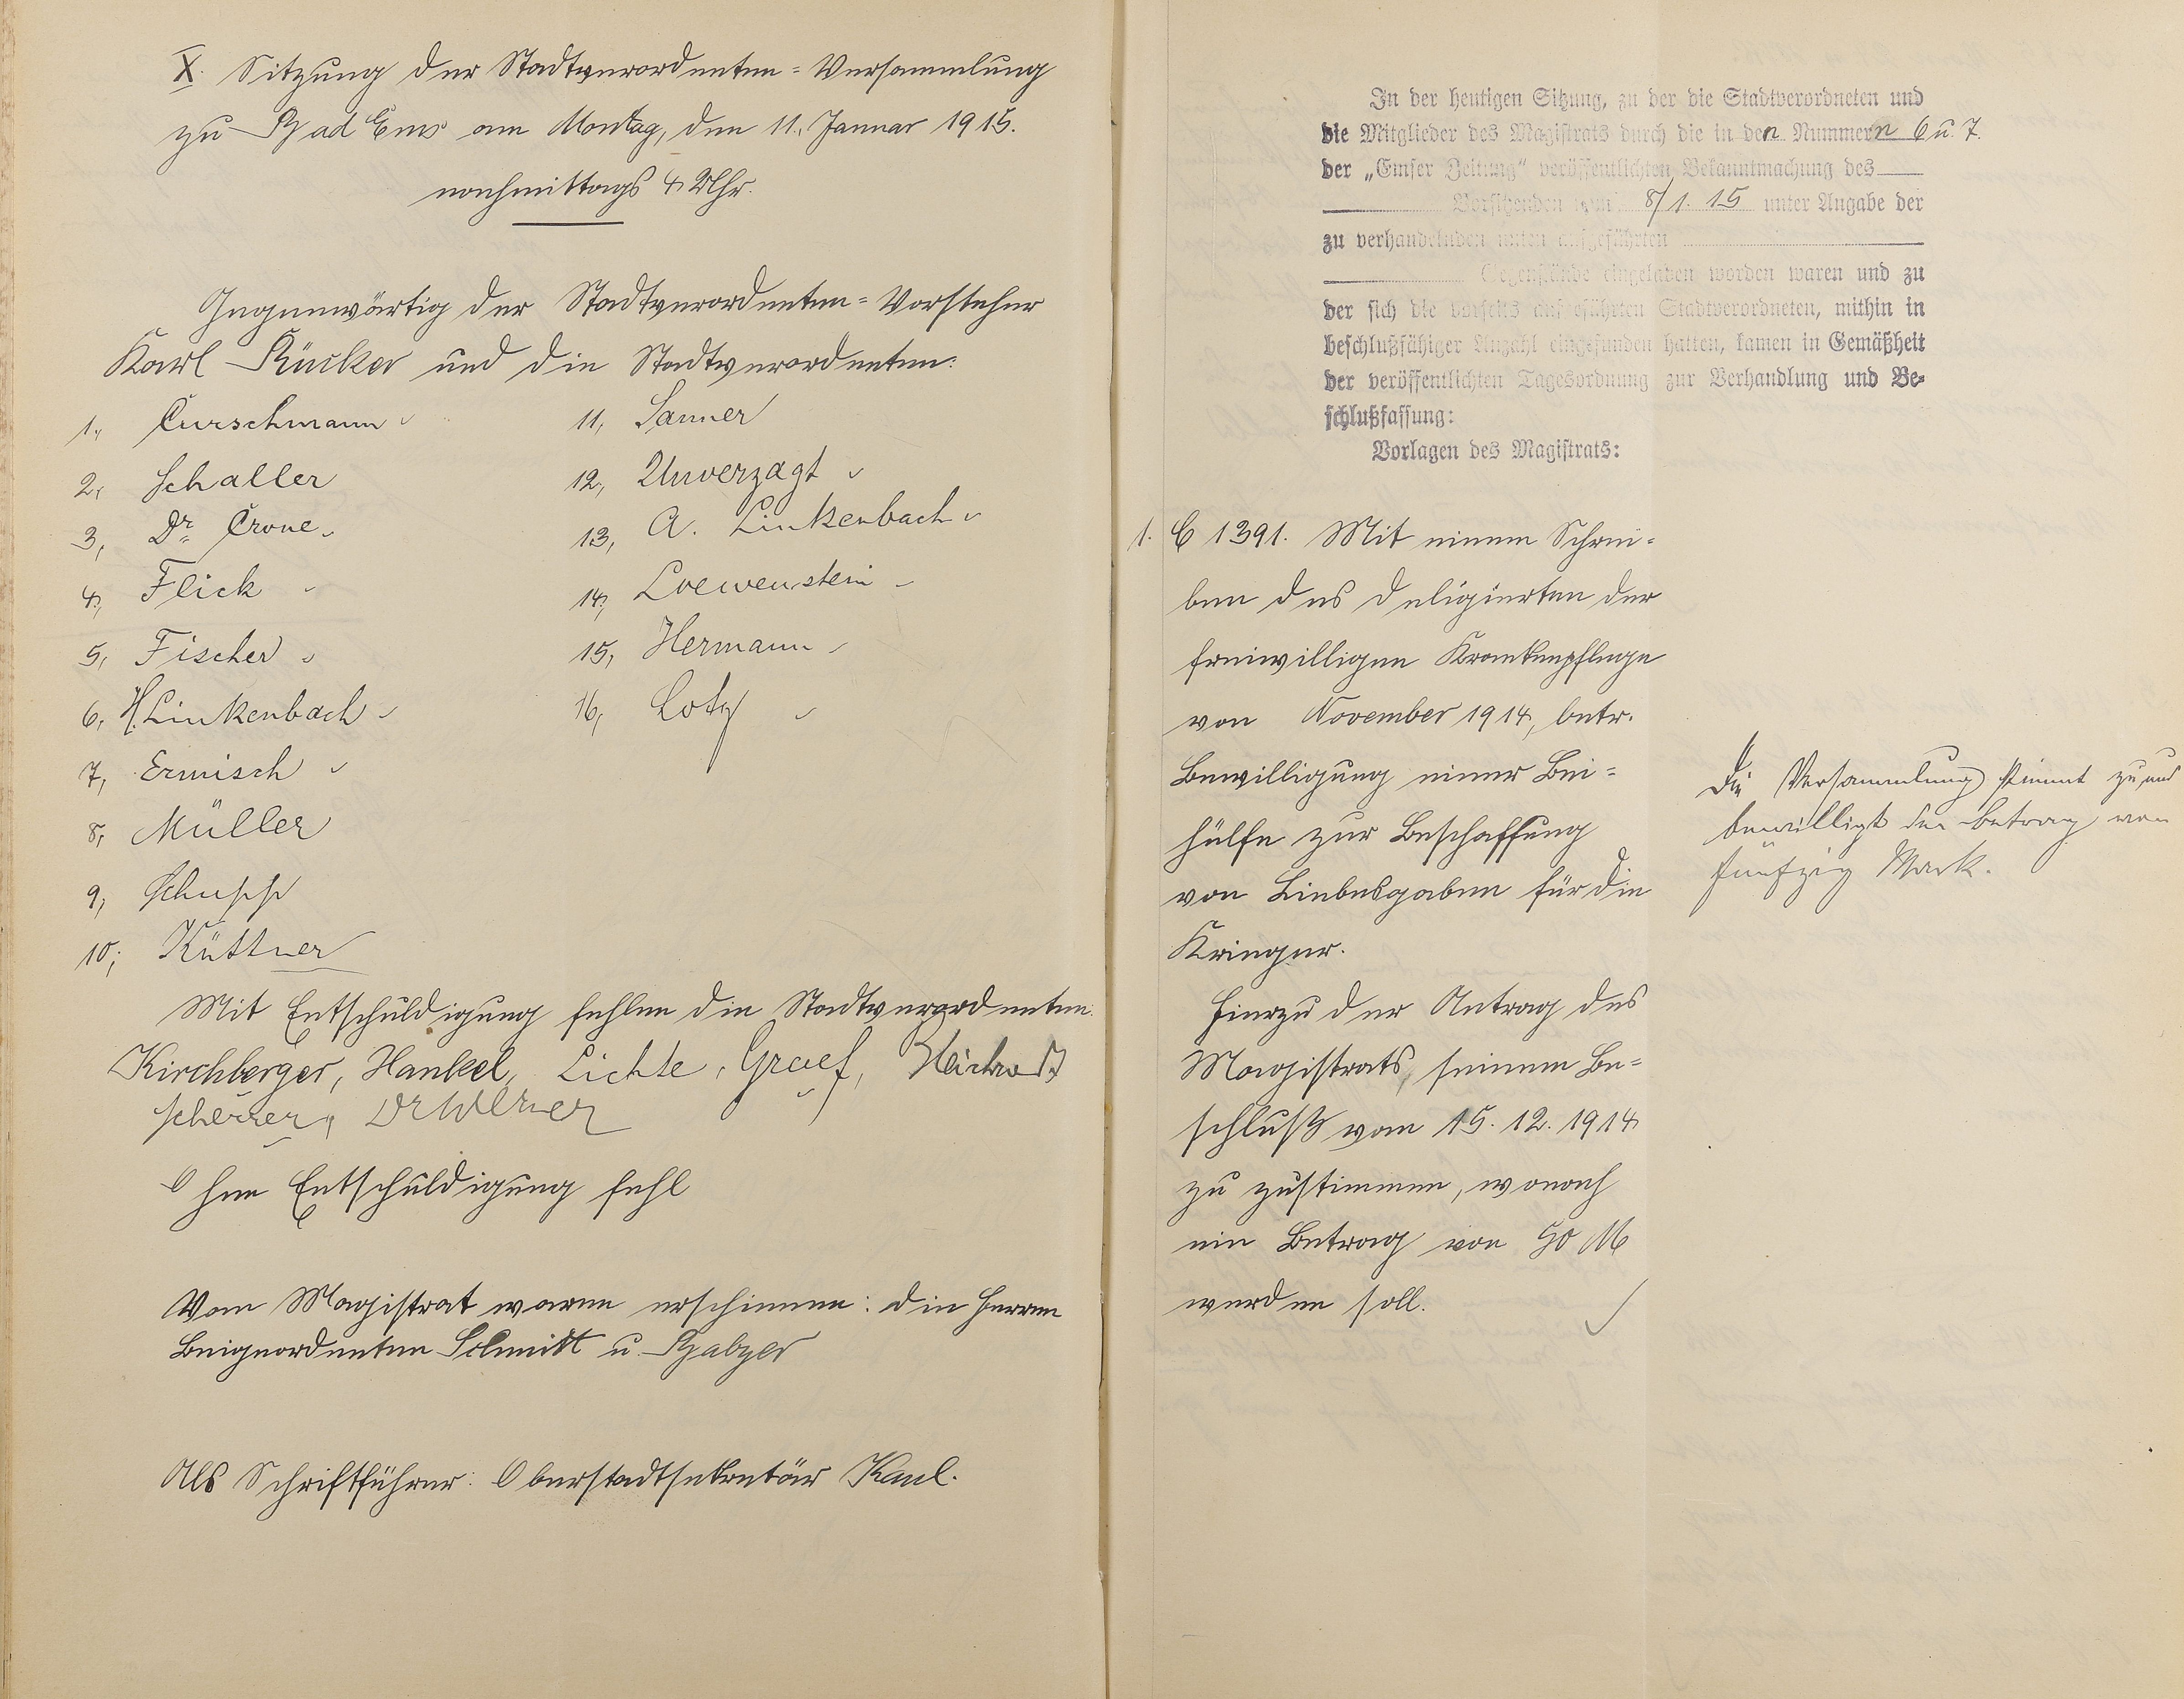 X. Sitzung der Stadtverordneten=Versammlung
zu Bad Ems am Montag, den 11. Januar 1915.
nachmittags 4 Uhr.
Gegenwärtig der Stadtverordneten=Vorsteher
Karl Rücker und die Stadtverordneten:
1., Curschmann
2, Schaller
3, Dr. Crone
4, Flick
5, Fischer
6, H. Linkenbach
7, Ermisch
8, Müller
9, Schupp
10, Küttner
11, Sanner
12, Unverzagt
13, A. Linkenbach
14, Loewenstein
15, Hermann
16, Loty
Mit Entschuldigung fehlen die Stadtverordneten:
Kirchberger, Hankel, Lichte, Graef,
Scherrer, Dr Werner
Ohne Entschuldigung fehl
Vom Magistrat waren erschienen: die Herren
Beigeordneten Schmitt u. Balzer
Als Schriftführer: Oberstadtsekretär Kaul.
In der heutigen Sitzung, zu der die Stadtverordneten und
die Mitglieder des Magistrats durch die in den Nummern 6 u. 7.
der „Emser Zeitung“ veröffentlichten Bekanntmachung des
Vorsitzenden vom 8/1. 15 unter Angabe der
zu verhandelnden unten aufgeführten
Gegenstände eingeladen worden waren und zu
der sich die vorseits aufgeführten Stadtverordneten, mithin in
beschlußfähiger Anzahl eingefunden hatten, kamen in Gemäßheit
der veröffentlichten Tagesordnung zur Verhandlung und Be-
schlußfassung:
Vorlagen des Magistrats:
1. C 1391. Mit einem Schrei=
ben des Deligierten der
freiwilligen Krankenpflege
von November 1914, betr.
Bewilligung einer Bei=
hülfe zur Beschaffung
von Liebesgaben für die
Krieger.
Hierzu der Antrag des
Magistrats, seinem Be=
schluß vom 15. 12. 1914
zu zustimmen, wonach
ein Betrag von 50 M
werden soll.
Die Versammlung stimmt zu und
bewilligt den Betrag von
fünfzig Mark.